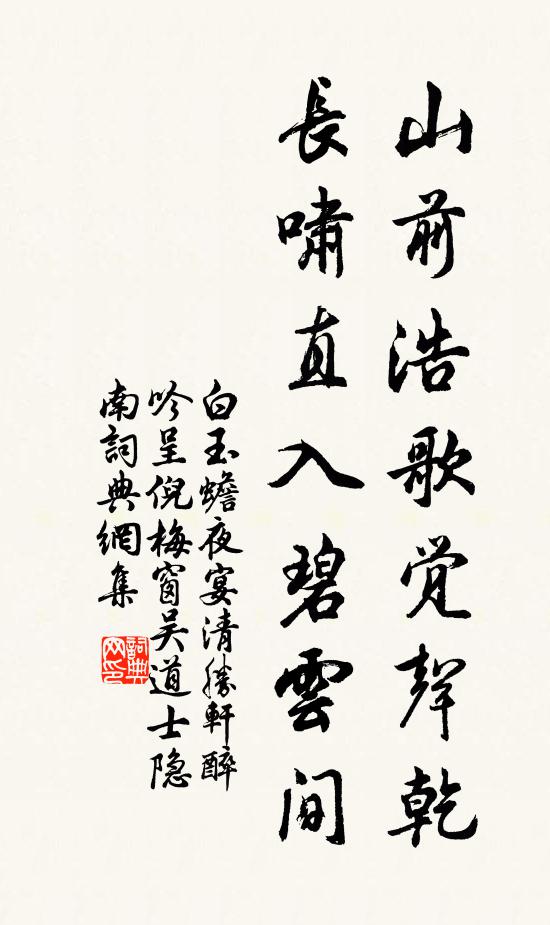 山前浩歌觉聲乾
長嘯直入碧雲间
白玉蟾夜宴清勝軒醉
吟呈倪梅窗吴道士隐
南詞典網集
詞典
网印